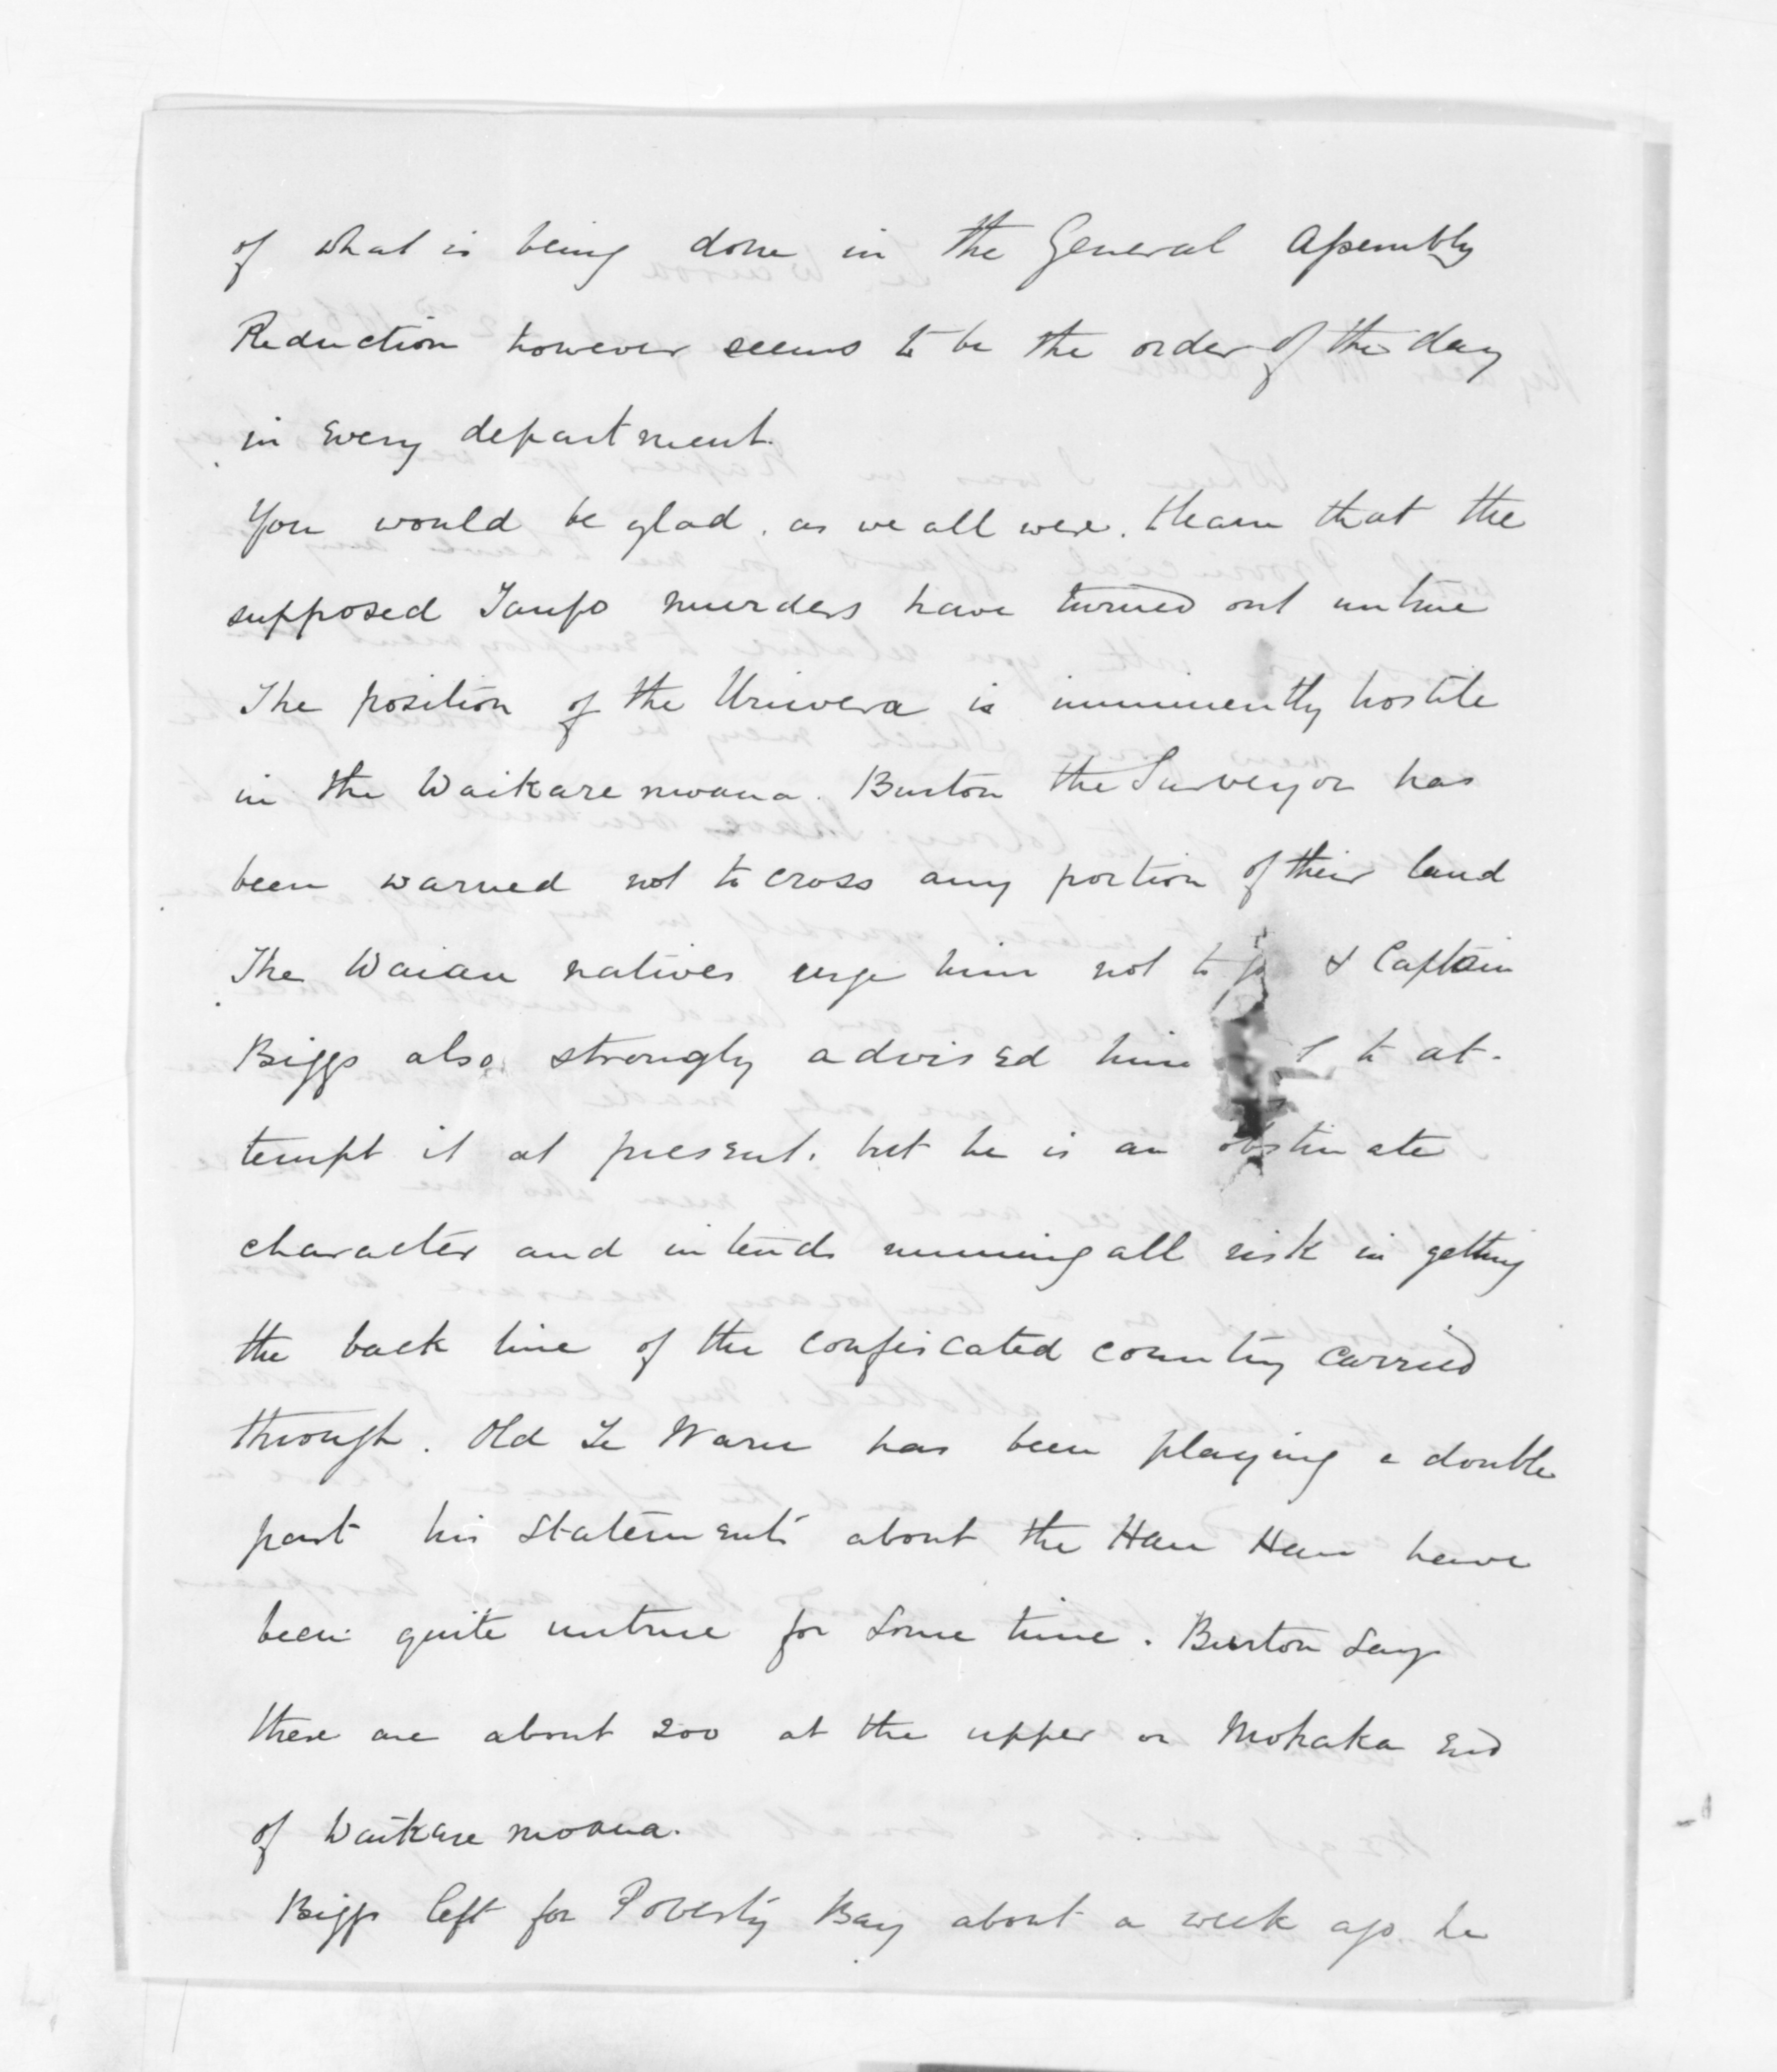 of what is being done in the General Assembly
Reduction however seems to be the order of the day
in every department.
You would be glad. as we all were. to learn that the
supposed Taupo murders have turned out untrue
The position of the Uriwera is imminently hostile
in the Waikare moana. Burton the Surveyor has
been warned not to cross any portion of their land
The Waiau natives urge him not to go & Captain
Biggs also strongly advised him to at-
tempt it at present. but he is an obstinate
character and intends running all risk in getting
the back line of the confiscated country carried
through. Old Te Waru has been playing a double
part his statements about the Hau Hau have
been quite untrue for some time. Burton says
there are about 200 at the upper or Mohaka End
of Waikare moana.
Biggs left for Poverty Bay about a week ago. he